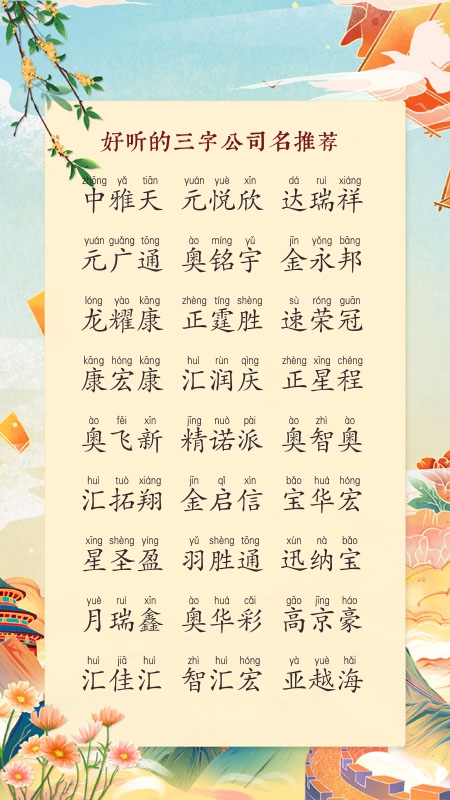 好听的三字公司名推荐
zhōng yǎ tiān yuán yuè xīn dá ruì xiáng
中雅天 元悦欣 达瑞祥
yuán guǎng tōng ào míng yǔ jīn yǒng bāng
元广通 奥铭宇 金永邦
lóng yào kāng zhèng tíng shèng sù róng guān
龙耀康 正霆胜 速荣冠
kāng hóng kāng huì rùn qìng zhèng xīng chéng
康宏康 汇润庆 正星程
ào fēi xīn jīng nuò pài ào zhì ào
奥飞新 精诺派 奥智奥
huì tuò xiáng jīn qǐ xìn bǎo huá hóng
汇拓翔 金启信 宝华宏
xīng shèng yíng yǔ shèng tōng xùn nà bǎo
星圣盈 羽胜通 迅纳宝
yuè ruì xīn ào huá cǎi gāo jīng háo
月瑞鑫 奥华彩 高京豪
huì jiā huì zhì huì hóng yà yuè hǎi
汇佳汇 智汇宏 亚越海